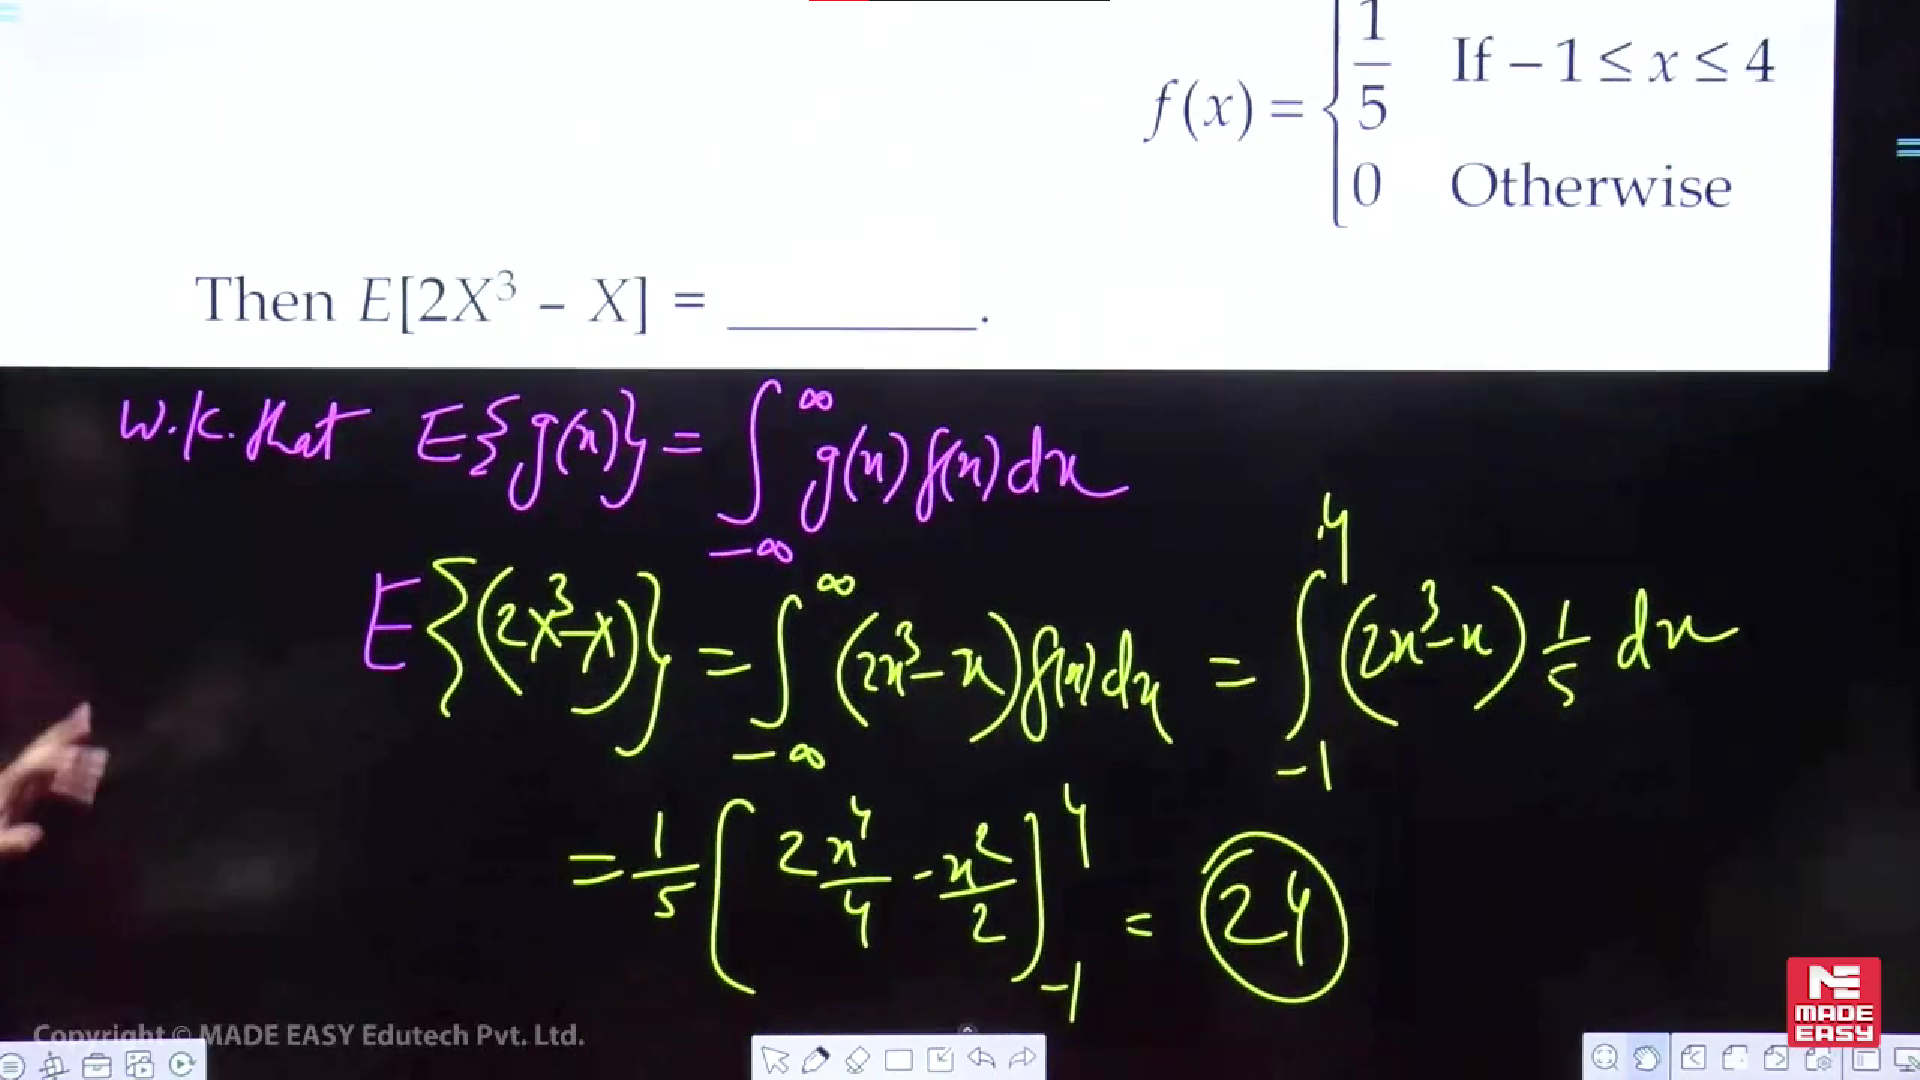 f(x) = { 1/5 If – 1 ≤ x ≤ 4
0 Otherwise
Then E[2X³ – X] = ________.
W.K. that E{g(x)} = ∫_{-∞}^{∞} g(x) f(x) dx
E{(2X³-X)} = ∫_{-∞}^{∞} (2x³-x) f(x) dx = ∫_{-1}^{4} (2x³-x) 1/5 dx
= 1/5 [2x⁴/4 - x²/2]_{-1}^{4} = 24
Copyright © MADE EASY Edutech Pvt. Ltd.
ME
MADE
EASY